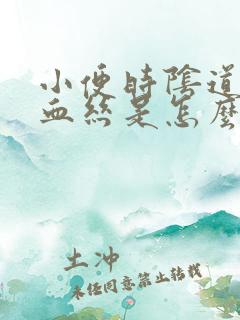 小便時陰道
血絲是怎麼
土沖
未经同意禁止转载